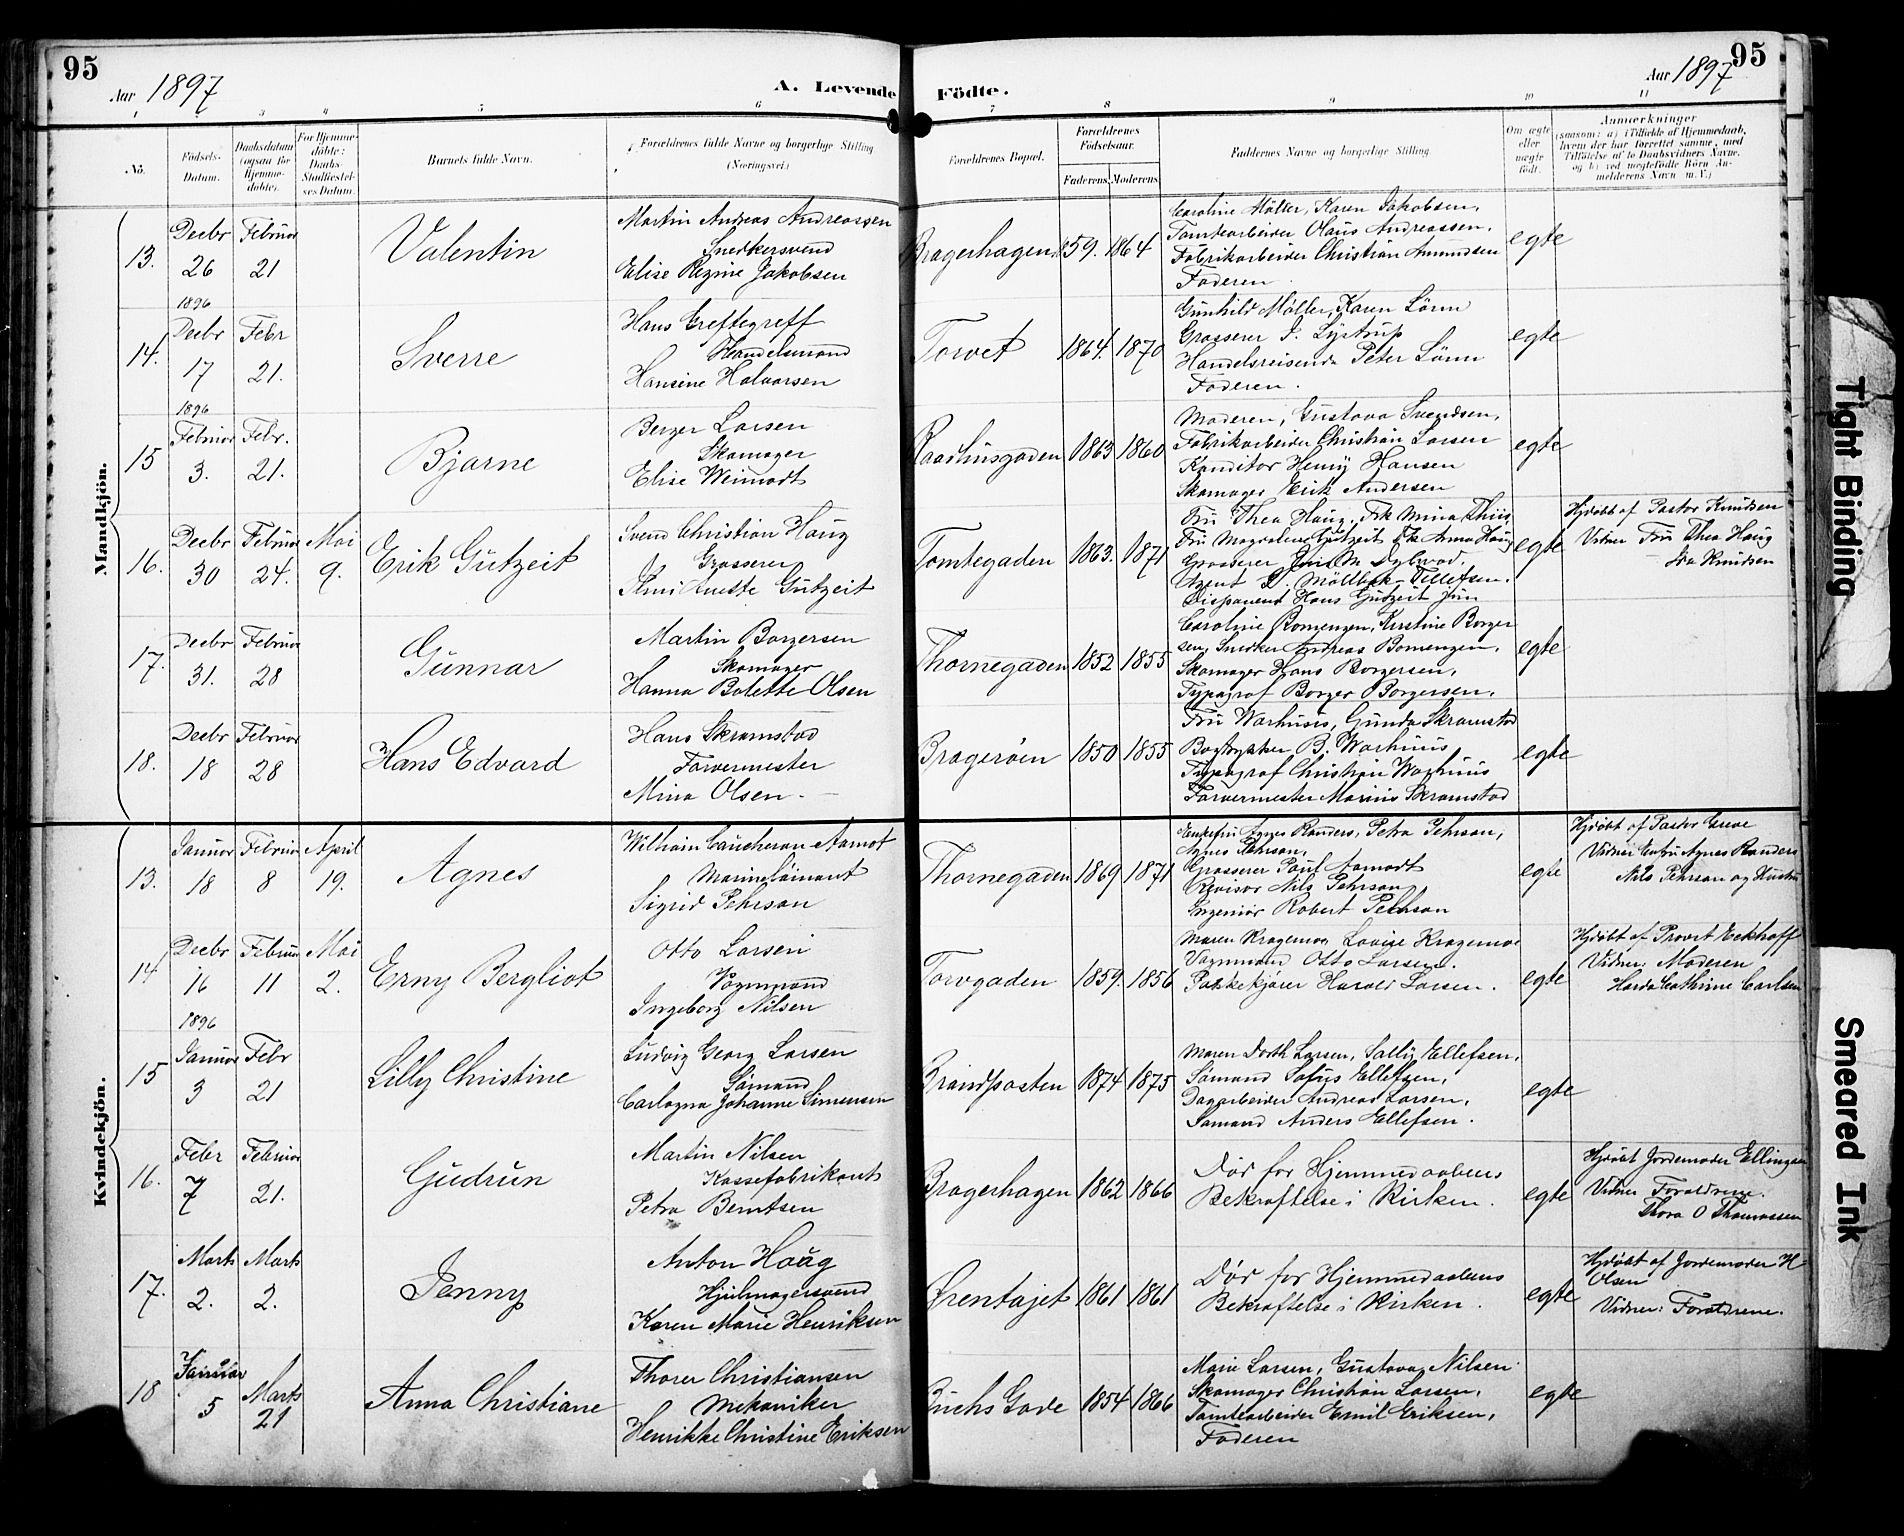 95
Aar 1897
A. Levende
Födte.
Aar 1897
95
1 3 4 5 6 7 8 9 10 11
No.
Födsels-
Datum.
Daabsdatum
(ogsaa for
Hjemme-
döbte).
For Hjemme-
döbte:
Daabs-
Stadfæstel-
ses Datum.
Barnets fulde Navn.
Forældrenes fulde Navne og borgerlige Stilling
(Næringsvei.)
Forældrenes Bopæl.
Forældrenes
Födselsaar.
Faderens. Moderens.
Faddernes Navne og borgerlige Stilling.
Om ægte
eller
uægte
födt.
Anmærkninger
(saasom: a) i Tilfælde af Hjemmedaab,
hvem der har forrettet samme, med
Tilföielse af to Daabsvidners Navne,
og b) ved uægtefödte Börn An-
melderens Navn m. V.)
Mandkjön.
13.
Decbr
26
1896
Februar
21
Valentin
Martin Andreas Andreassen
Snedkersvend
Elise Regine Jakobsen
Bragerhagen
1859. 1864
Caroline Möller, Karen Jakobsen,
Tomtearbeider Olaus Andreassen,
Fabrikarbeider Christian Amundsen
Faderen.
egte
14.
Decbr
17
1896
Febr
21.
Sverre
Hans Greftegreff
Handelsmand
Hansine Halvorsen
Torvet
1864. 1870
Gunhild Möller, Karen Lörm
Grosserer J. Lystrup
Handelsreisende Peter Lörm
Faderen.
egte
15
Februar
3.
Febr.
21.
Bjarne
Berger Larsen
Skomager
Elise Weimodt
Raadhusgaden
1863 1860
Moderen, Gustava Svendsen,
Fabrikarbeider Christian Larsen
Konditor Henry Hansen
Skomager Erik Andersen
egte
16.
Decbr
30
Februar
24.
Mai
9.
Erik Gutzeit
Svend Christian Haug
Grosserer
Anette Gutzeit
Tomtegaden
1863. 1871
Fru Thea Haug, Frk Mina Thiis,
Fru Magdalene Gutzeit, Frk Anna Haug
Grosserer Jens M Dylwad.
Agent D. Möllbek-Tellefsen.
Disponent Hans Gutzeit jun
egte
Hjdöbt af Pastor Knudsen
Vidner Fru Thea Haug
Fru Knudsen
17.
Decbr
31.
Februar
28
Gunnar
Martin Borgersen
Skomager
Hanna Bolette Olsen
Thornegaden
1852 1855
Caroline Bomengen, Kirstine Borger
sen, Snedker Andreas Bomengen,
Skomager Hans Borgersen,
Typograf Borger Borgersen.
egte
18.
Decbr
18
Februar
28
Hans Edvard
Hans Skramstad
Farvermester
Mina Olsen.
Bragerøen
1850 1855
Fru Warhuus, Gunda Skramstad
Bogtrykker B. Warhuus
Typograf Christian Warhuus
Farvermester Marius Skramstad
egte
Kvindekjön.
13.
Januar
18
Februar
8
April
19.
Agnes
Wilhelm Cancheron Aamot
Marinelöitnant
Sigrid Pehrson
Thornegaden
1869 1871
Enkefru Agnes Randers, Petra Pehrson,
Agnes Pehrson,
Grosserer Paul Aamodt
Revisor Nils Pehrson
Ingeniör Robert Pehrson
egte
Hjdöbt af Pastor Greve
Vidner Enkefru Agnes Randers
Nils Pehrson og Hustru
14
Decbr
16
1896
Februar
11
Mai
2.
Erny Bergliot
Otto Larsen
Vognmand
Ingeborg Nilsen
Torvgaden
1859. 1856
Maren Kragemoe Lovise Kragemoe
Vognmand Otto Larsen.
Pakkekjører Harald Larsen.
egte
Hjdöbt af Provst Eckhoff
Vidner: Moderen
Harda Cathrine Carlsen
15
Januar
3
Febr
21
Lilly Christine
Ludvig Georg Larsen
Sömand
Carlogna Johanne Simensen
Brandposten
1874 1875
Maren Dorth Larsen, Sally Ellefsen,
Sömand Sofus Ellefsen,
Dagarbeider Andreas Larsen,
Sömand Anders Ellefsen.
egte
16.
Febr
7
Februar
21.
Gudrun
Martin Nilsen
Kassefabrikant
Petra Berntsen
Bragerhagen
1862 1866
Död for Hjemmedaabens
Bekræftelse i Kirken.
egte
Hjdöbt Jordemoder Ellingsen
Vidner Forældrene.
Thora O Thomassen
17.
Marts
2.
Marts
2.
Jenny
Anton Haag
Hjulmagersvend
Karen Marie Henriksen
Ørentajet
1861 1861
Död for Hjemmedaabens
Bekræftelse i Kirken.
egte
Hjdöbt af Jordemoder H
Olsen
Vidner: Forældrene.
18
Januar
5
Marts
21
Anna Christiane
Thorer Christiansen
Mekaniker
Henrikke Christine Eriksen
Buchs Gade
1854 1866
Marie Larsen, Gustava Nilsen
Skomager Christian Larsen,
Tomtearbeider Emil Eriksen,
Faderen
egte
Tight Binding
Smeared Ink